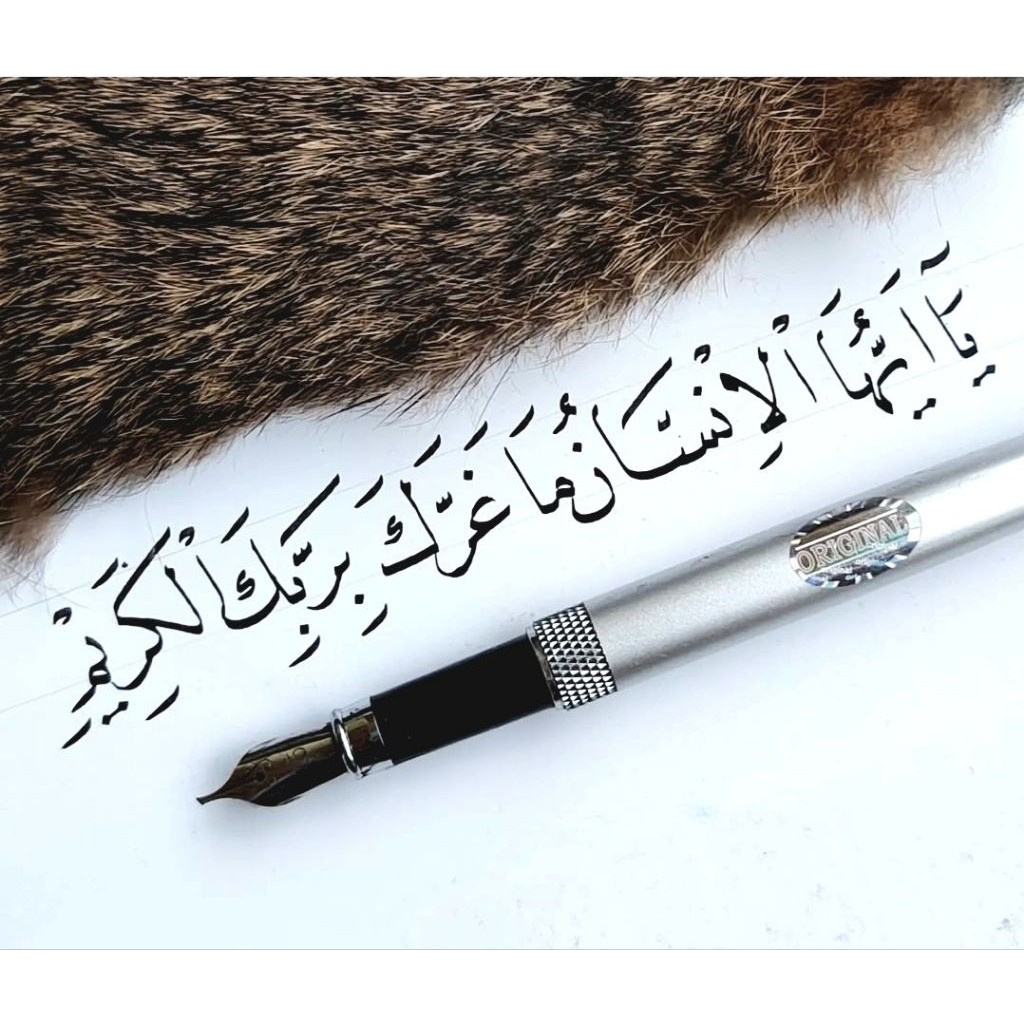 يَآ اَيُّهَا الْاِنْسَّانُ مَا غَرَّكَ بِرَبِّكَ الْكَرِيْمِ
ORIGINAL